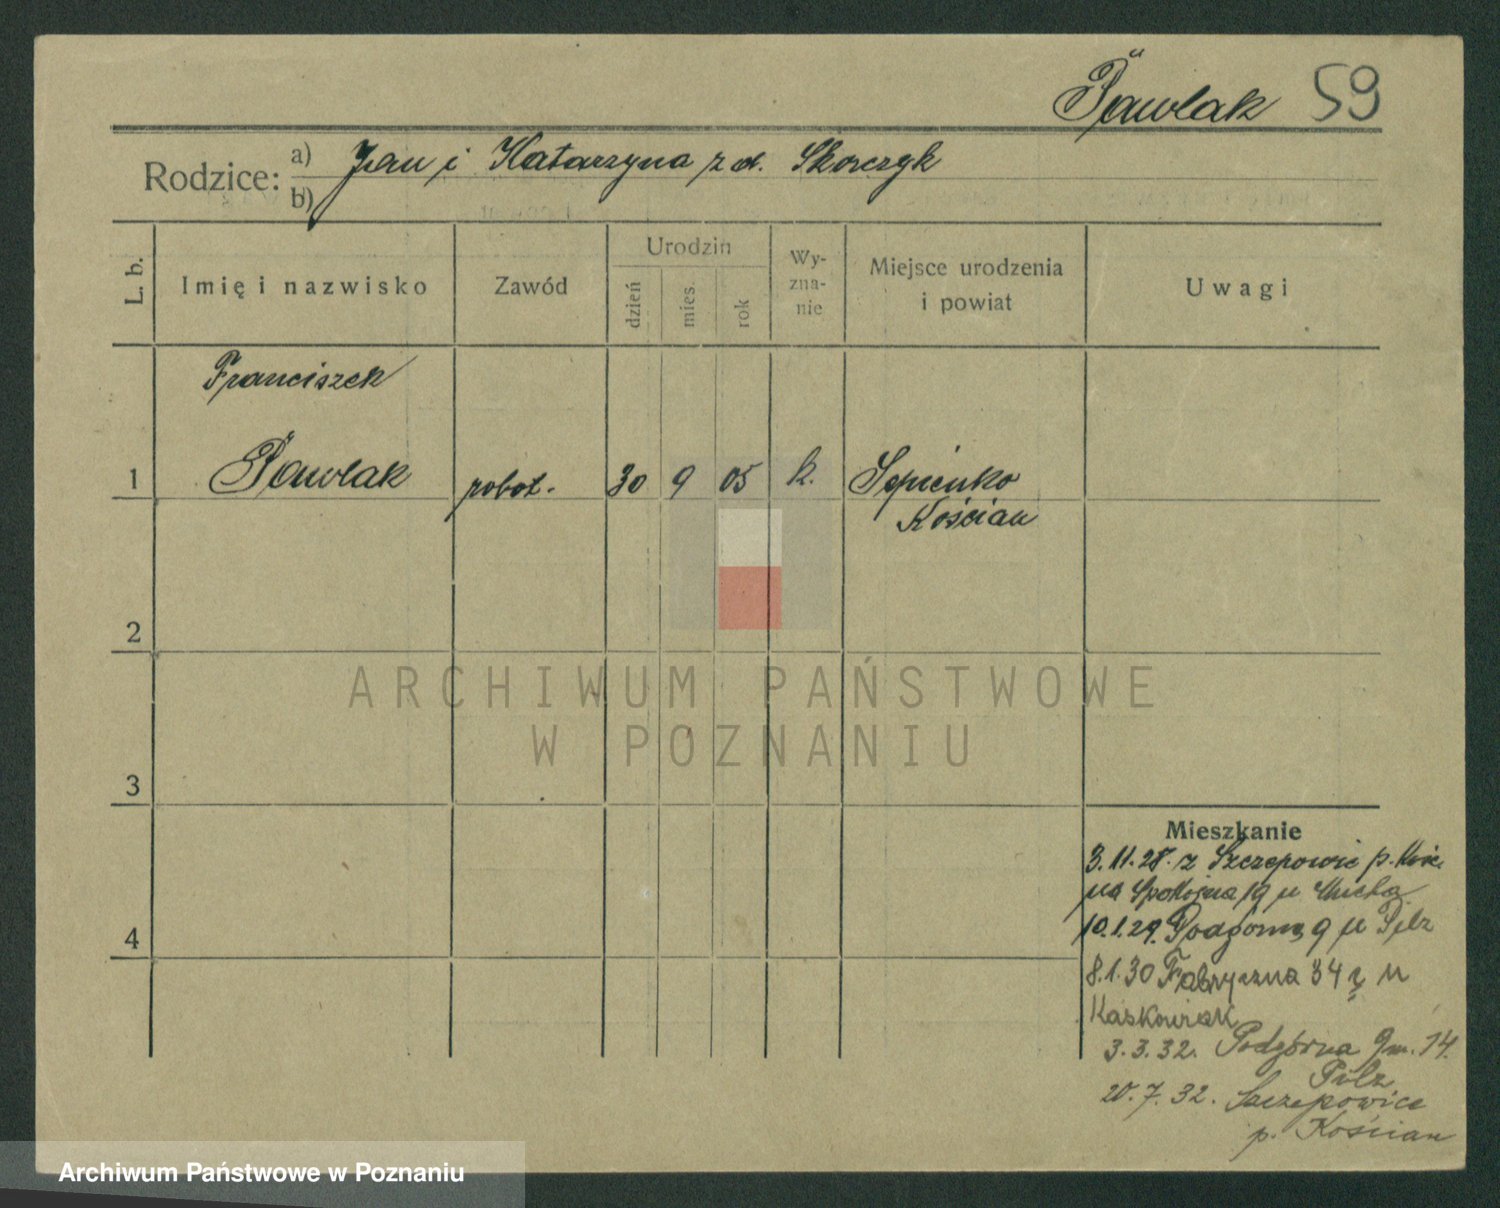 Pawlak 59
Rodzice: a) b) Jan i Katarzyna z d. Skorczyk
L. b.
Imię i nazwisko
Zawód
Urodzin
dzień
mies.
rok
Wy-
zna-
nie
Miejsce urodzenia
i powiat
Uwagi
Franciszek
1 Pawlak robot. 30 9 05 k. Sepienko
Kościan
2
3
4
Mieszkanie
3.11.28. z Szczepowic p. Kośc.
na Spokojna 19 u Mucha
10.1.29. Podgórna 9 u Pilz
8.1.30 Fabryczna 34 u
Kaskowiak
3.3.32. Podgórna 9 m. 14.
Pilz
20.7.32. Szczepowice
p. Kościan
ARCHIWUM PAŃSTWOWE
W POZNANIU
Archiwum Państwowe w Poznaniu